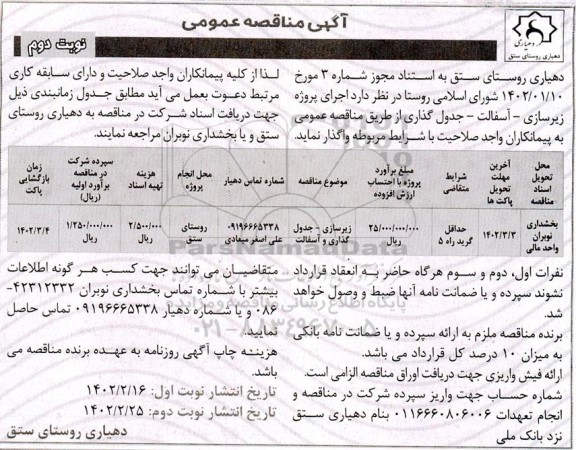 آگهی مناقصه عمومی
نوبت دوم
دهیاری
دهیاری روستای ستق
دهیاری روستای ستق به استناد مجوز شماره ۳ مورخ
۱۴۰۲/۰۱/۱۰ شورای اسلامی روستا در نظر دارد اجرای پروژه
زیرسازی – آسفالت – جدول گذاری از طریق مناقصه عمومی
به پیمانکاران واجد صلاحیت با شرایط مربوطه واگذار نماید.
لـذا از کلیه پیمانکاران واجد صلاحیت و دارای سابقه کاری
مرتبط دعوت بعمل می آید مطابق جدول زمانبندی ذیل
جهت دریافت اسناد شـرکت در مناقصه به دهیاری روستای
ستق و یا بخشداری نوبران مراجعه نمایند.
محل تحویل اسناد مناقصه | آخرین مهلت تحویل پاکت ها | شرایط متقاضی | مبلغ برآورد پروژه با احتساب ارزش افزوده | موضوع مناقصه | شماره تماس دهیار | محل انجام پروژه | هزینه تهیه اسناد | سپرده شرکت در مناقصه برآورد اولیه (ریال) | زمان بازگشایی پاکت
بخشداری نوبران واحد مالی | ۱۴۰۲/۳/۳ | حداقل گرید راه ۵ | ۲۵/۰۰۰/۰۰۰/۰۰۰ ریال | زیرسازی – جدول گذاری و آسفالت | ۰۹۱۹۶۶۶۵۳۳۸ علی اصغر میعادی | روستای ستق | ۲/۵۰۰/۰۰۰ ریال | ۱/۲۵۰/۰۰۰/۰۰۰ ریال | ۱۴۰۲/۳/۴
نفرات اول، دوم و سـوم هرگاه حاضر بـه انعقاد قرارداد
نشوند سپرده و یا ضمانت نامه آنها ضبط و وصول خواهد
شد.
برنده مناقصه ملزم به ارائه سپرده و یا ضمانت نامه بانکی
به میزان ۱۰ درصد کل قرارداد می باشد.
ارائه فیش واریزی جهت دریافت اوراق مناقصه الزامی است.
شماره حساب جهت واریز سپرده شرکت در مناقصه و
انجام تعهدات ۰۱۱۶۶۶۰۸۰۶۰۰۶ بنام دهیاری سـتق
نزد بانک ملی
متقاضیـان می توانند جهت کسـب هـر گونه اطلاعات
بیشتر با شماره تماس بخشداری نوبران ۴۲۳۱۲۳۳۲-
۰۸۶ و یا شـماره دهیار ۰۹۱۹۶۶۶۵۳۳۸ تماس حاصل
نمایید.
هزینـه چاپ آگهی روزنامه به عهـده برنده مناقصه می
باشد.
تاریخ انتشار نوبت اول: ۱۴۰۲/۲/۱۶
تاریخ انتشار نوبت دوم: ۱۴۰۲/۲/۲۵
دهیاری روستای ستق